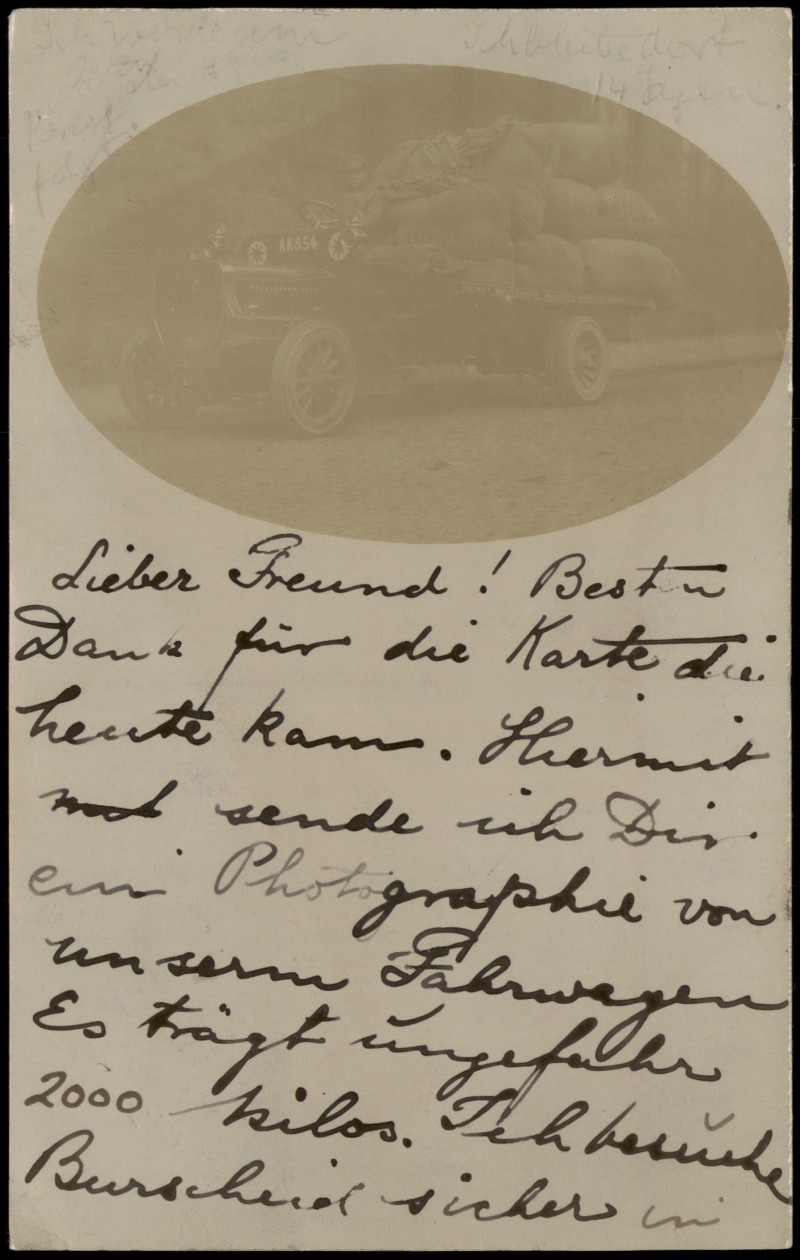 Ich werde am
Ich bleibe dort
14 Tagen.
Brief
folgt
AK854
Lieber Freund! Besten
Dank für die Karte die
heute kam. Hiermit
sende ich Dir
ein Photographie von
unserm Fahrwagen
Es trägt ungefahr
2000 kilos. Ich besuche
Burscheid sicher in